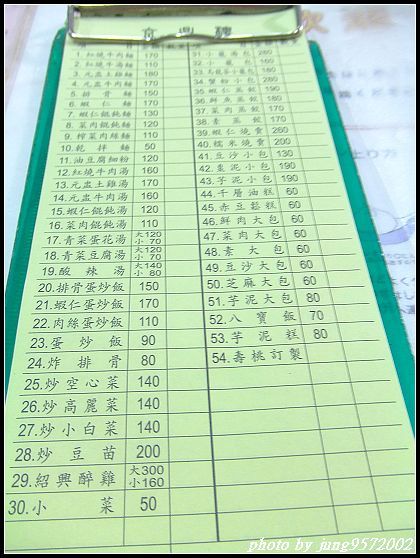 京鼎樓
1. 紅燒牛肉麵 170
2. 紅燒牛湯麵 110
3. 元盅土雞麵 180
4. 元盅牛肉麵 170
5. 排骨麵 150
6. 蝦仁麵
7. 蝦仁餛飩麵 130
8. 菜肉餛飩麵 120
9. 榨菜肉絲麵 110
10. 乾拌麵 50
11. 油豆腐細粉 120
12. 紅燒牛肉湯 160
13. 元盅土雞湯 170
14. 元盅牛肉湯 160
15. 蝦仁餛飩湯 120
16. 菜肉餛飩湯 110
17. 青菜蛋花湯 大120 小 70
18. 青菜豆腐湯 大120 小 70
19. 酸辣湯 大140 小 80
20. 排骨蛋炒飯 150
21. 蝦仁蛋炒飯 170
22. 肉絲蛋炒飯 110
23. 蛋炒飯 90
24. 炸排骨 80
25. 炒空心菜 140
26. 炒高麗菜 140
27. 炒小白菜 140
28. 炒豆苗 200
29. 紹興醉雞 大300 小160
30. 小菜 50
31. 小籠湯包 280
32. 小籠包
33. 烏龍茶小籠包
34. 蟹粉小包
35. 蝦仁蒸餃
36. 鮮魚蒸餃
37. 菜肉蒸餃 170
38. 素蒸餃
39. 蝦仁燒賣 260
40. 糯米燒賣 200
41. 豆沙小包 130
42. 棗泥小包 190
43. 芋泥小包 190
44. 千層油糕 60
45. 赤豆鬆糕 60
46. 鮮肉大包 60
47. 菜肉大包 60
48. 素大包 60
49. 豆沙大包 60
50. 芝麻大包 60
51. 芋泥大包 80
52. 八寶飯 70
53. 芋泥糕 80
54. 壽桃訂製
photo by jang9572002